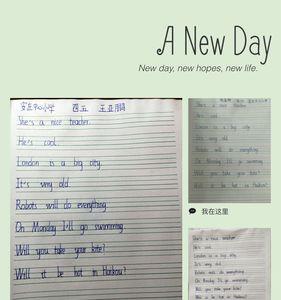 A New Day
New day, new hopes, new life.
中心小学 四五 王亚
She's a nice teacher.
He's cool.
London is a big city.
It's very old.
Robots will do everything.
On Monday I'll go swimming.
Will you take your kite?
Will it be hot in Haikou?
She's a nice teacher.
He's cool.
London is a big city.
It's very old.
Robots will do everything.
On Monday I'll go swimming.
Will you take your kite?
Will it be hot in Haikou?
我在这里
She's a nice teacher.
He's cool.
London is a big city.
It's very old.
Robots will do everything.
On Monday I'll go swimming.
Will you take your kite?
Will it be hot in Haikou?